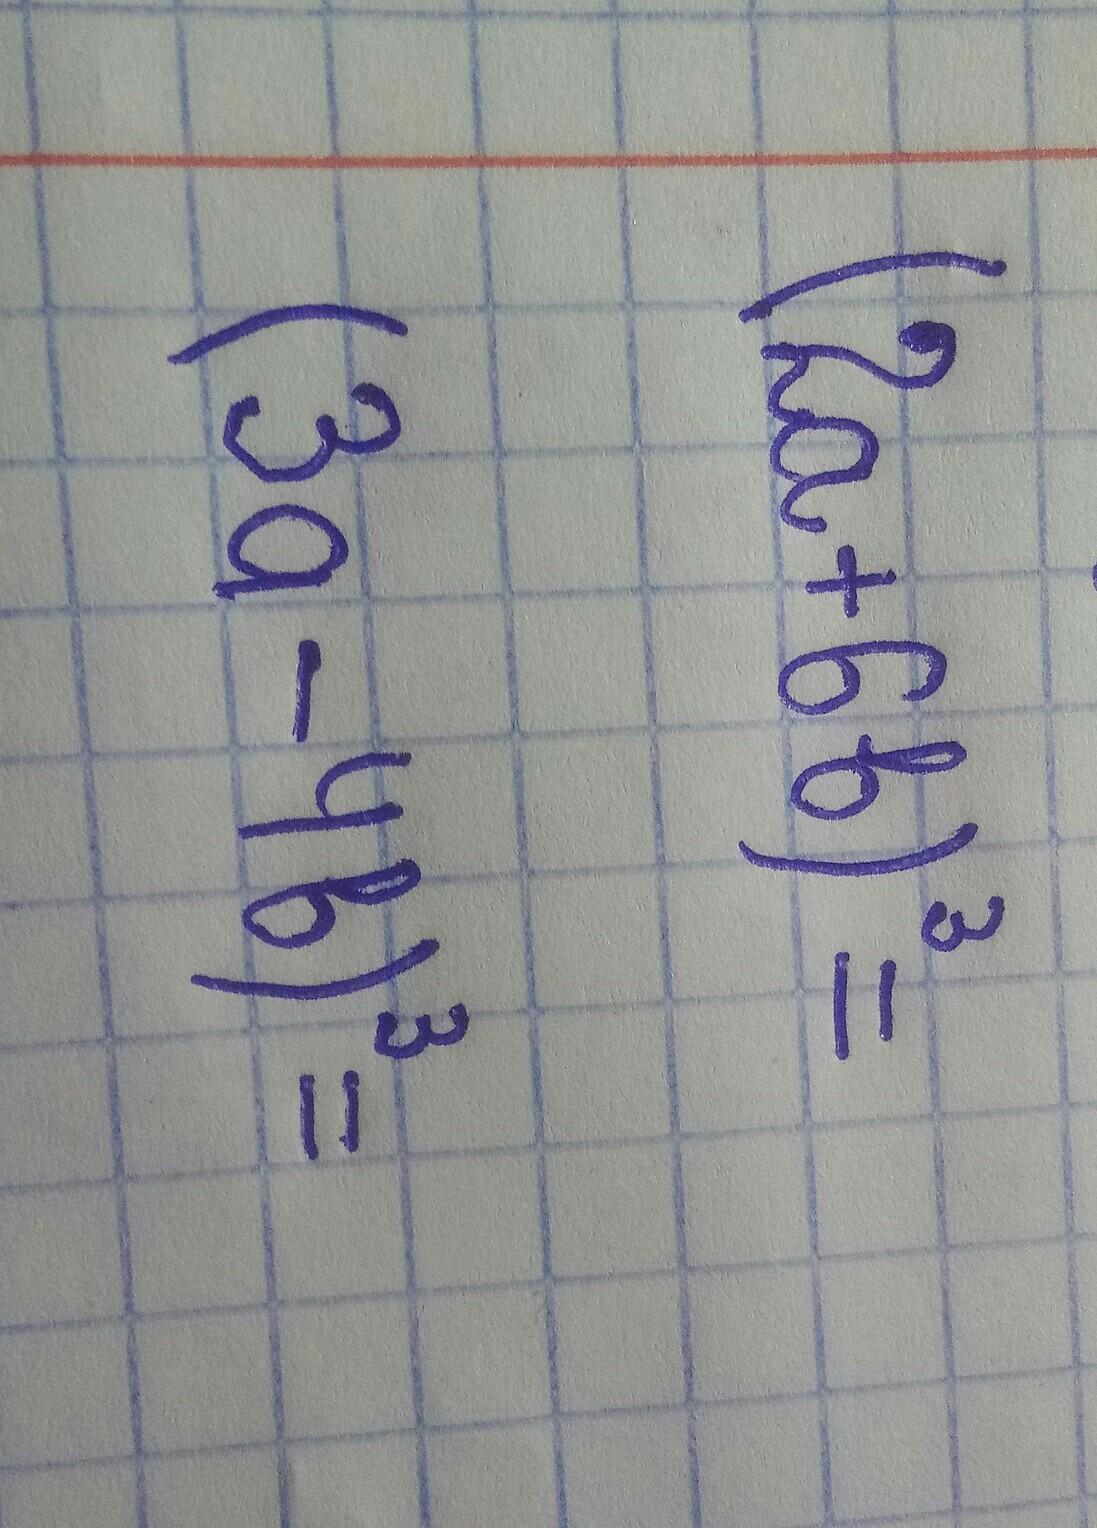 (2a+6b)³=
(3a-4b)³=